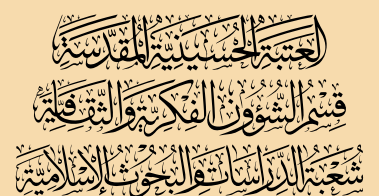 العَتَبَةُ الحُسَيْنِيَّةُ المُقَدَّسَةُ
قِسْمُ الشُّؤُونِ الفِكْرِيَّةِ وَالثَّقَافِيَّةِ
شُعْبَةُ الدِّرَاسَاتِ وَالبُحُوثِ الإِسْلَامِيَّةِ